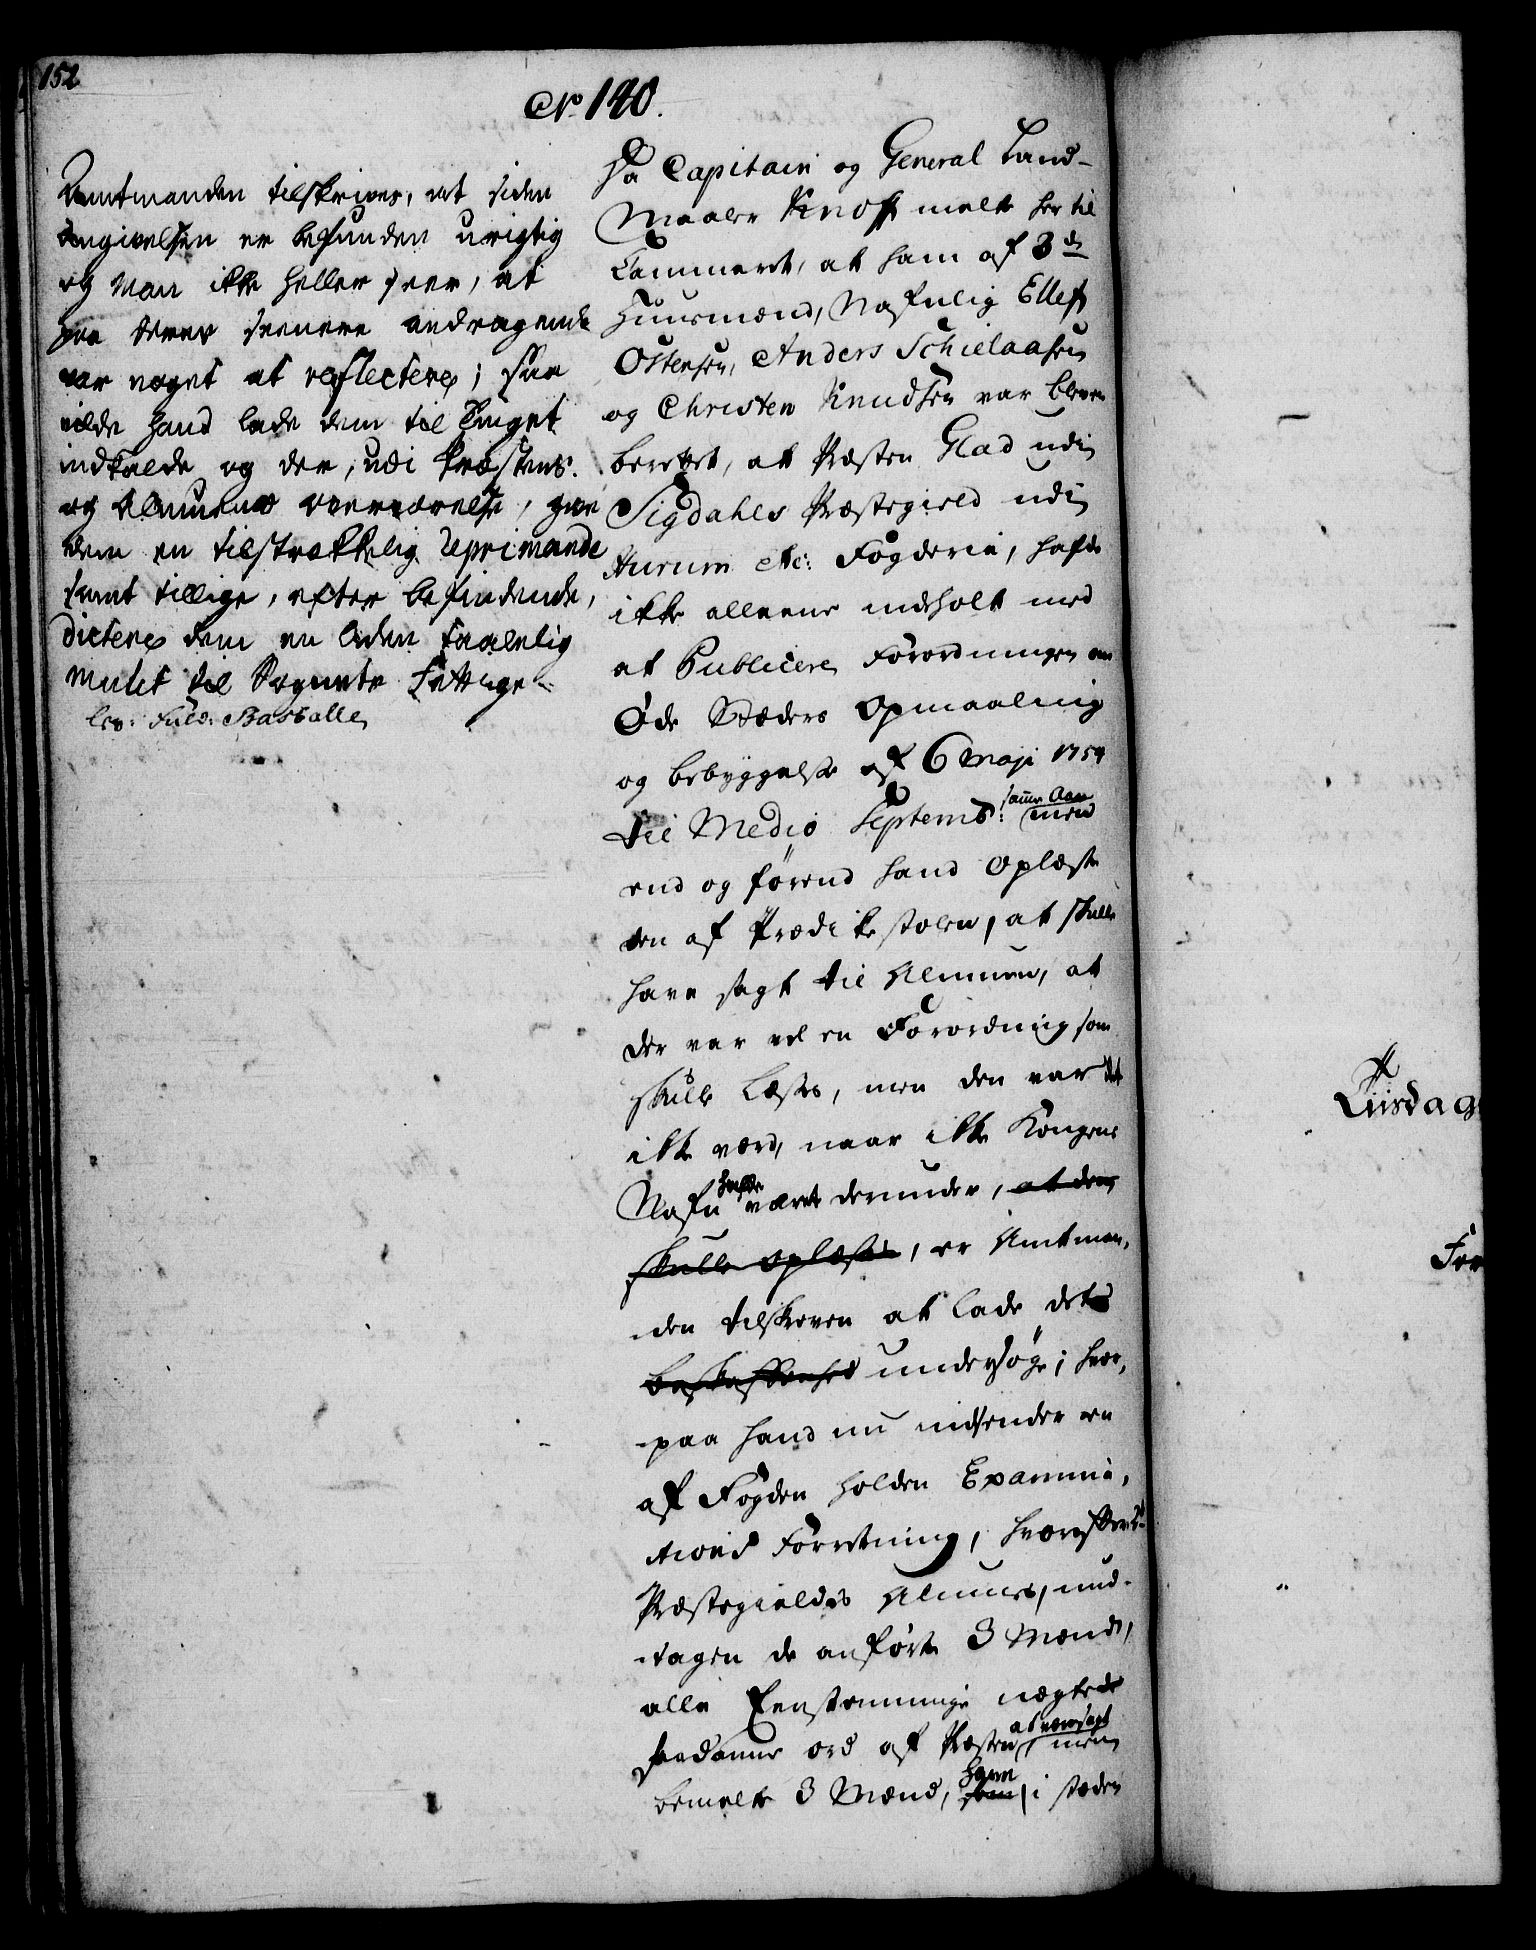 152
No 140.
Amtmanden tilskrives, at siden
Angivelsen er befunden urigtig
og man ikke heller seer, at
paa deres seenere andragende
var noget at reflectere; saa
vilde hand lade dem til Tinget
indkalde og der, udi Præstens
og Almuens overværelse, give
dem en tilstrækkelig Reprimande
samt tillige, efter befindende,
dictere dem en liden taalelig
Mulct til Sognets Fattige
Fuld: Barballe
Da Capitain og General Land-
Maaler Knoff melte her til
Cammeret, at ham af 3de
Huusmænd, Nafnlig Ellef
Ostensen, Anders Schielaasen
og Christen Knudsen var bleven
berettet, at Præsten Glad udi
Sigdahls Præstegield udi
etc: Fogderie, hafde
ikke alleene indholt med
at Publicere Forordningen om
Øde Stæders Opmaaling
og bebyggelse af 6 Maji 1754
til Medio Septemb: samme Aar men
end og førend hand Oplæste
den af Prædikestolen, at skulle
have sagt til Almuen, at
der var vel en Forordning som
skulle læses, men den var det
ikke værd, naar ikke Kongens
Nafn hafde været derunder, at den
skulle oplæses, er Amtman-
den tilskreven at lade det
beskaffenhed undersøge; hvor-
paa hand nu indsender en
af Fogden holden Examina-
tions Forretning, hvorefter
Præstegieldets Almue, und-
tagen de anførte 3 Mænd,
alle Eenstemmige nægtede
saadanne ord af Præsten at være sagt men
bemelte 3 Mænd, som have i stæden
Liisdag
For